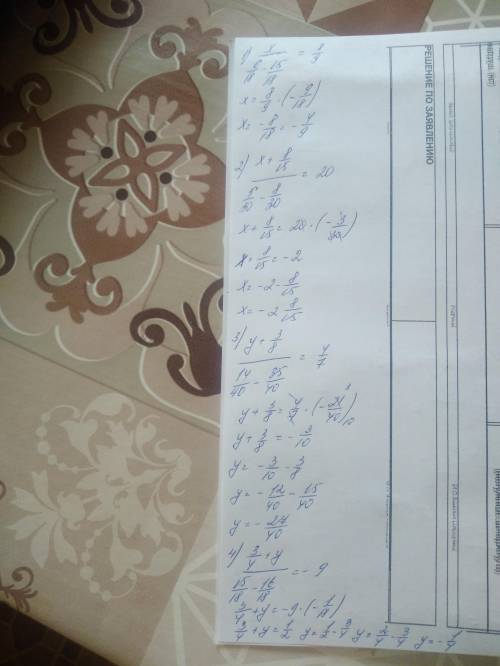 1) x / (6/18 - 15/18) = 8/9
x = 8/9 · (-9/18)
x = -8/18 = -4/9
2) (x + 8/15) / (5/30 - 8/30) = 20
x + 8/15 = 20 · (-3/30)
x + 8/15 = -2
x = -2 - 8/15
x = -2 8/15
3) (y + 3/8) / (14/40 - 35/40) = 4/7
y + 3/8 = 4/7 · (-21/40) 3 10
y + 3/8 = -3/10
y = -3/10 - 3/8
y = -12/40 - 15/40
y = -27/40
4) (3/4 + y) / (15/18 - 16/18) = -9
3/4 + y = -9 · (-1/18)
3/4 + y = 1/2 y = 1/2 - 3/4 y = 2/4 - 3/4 y = -1/4
РЕШЕНИЕ ПО ЗАЯВЛЕНИЮ